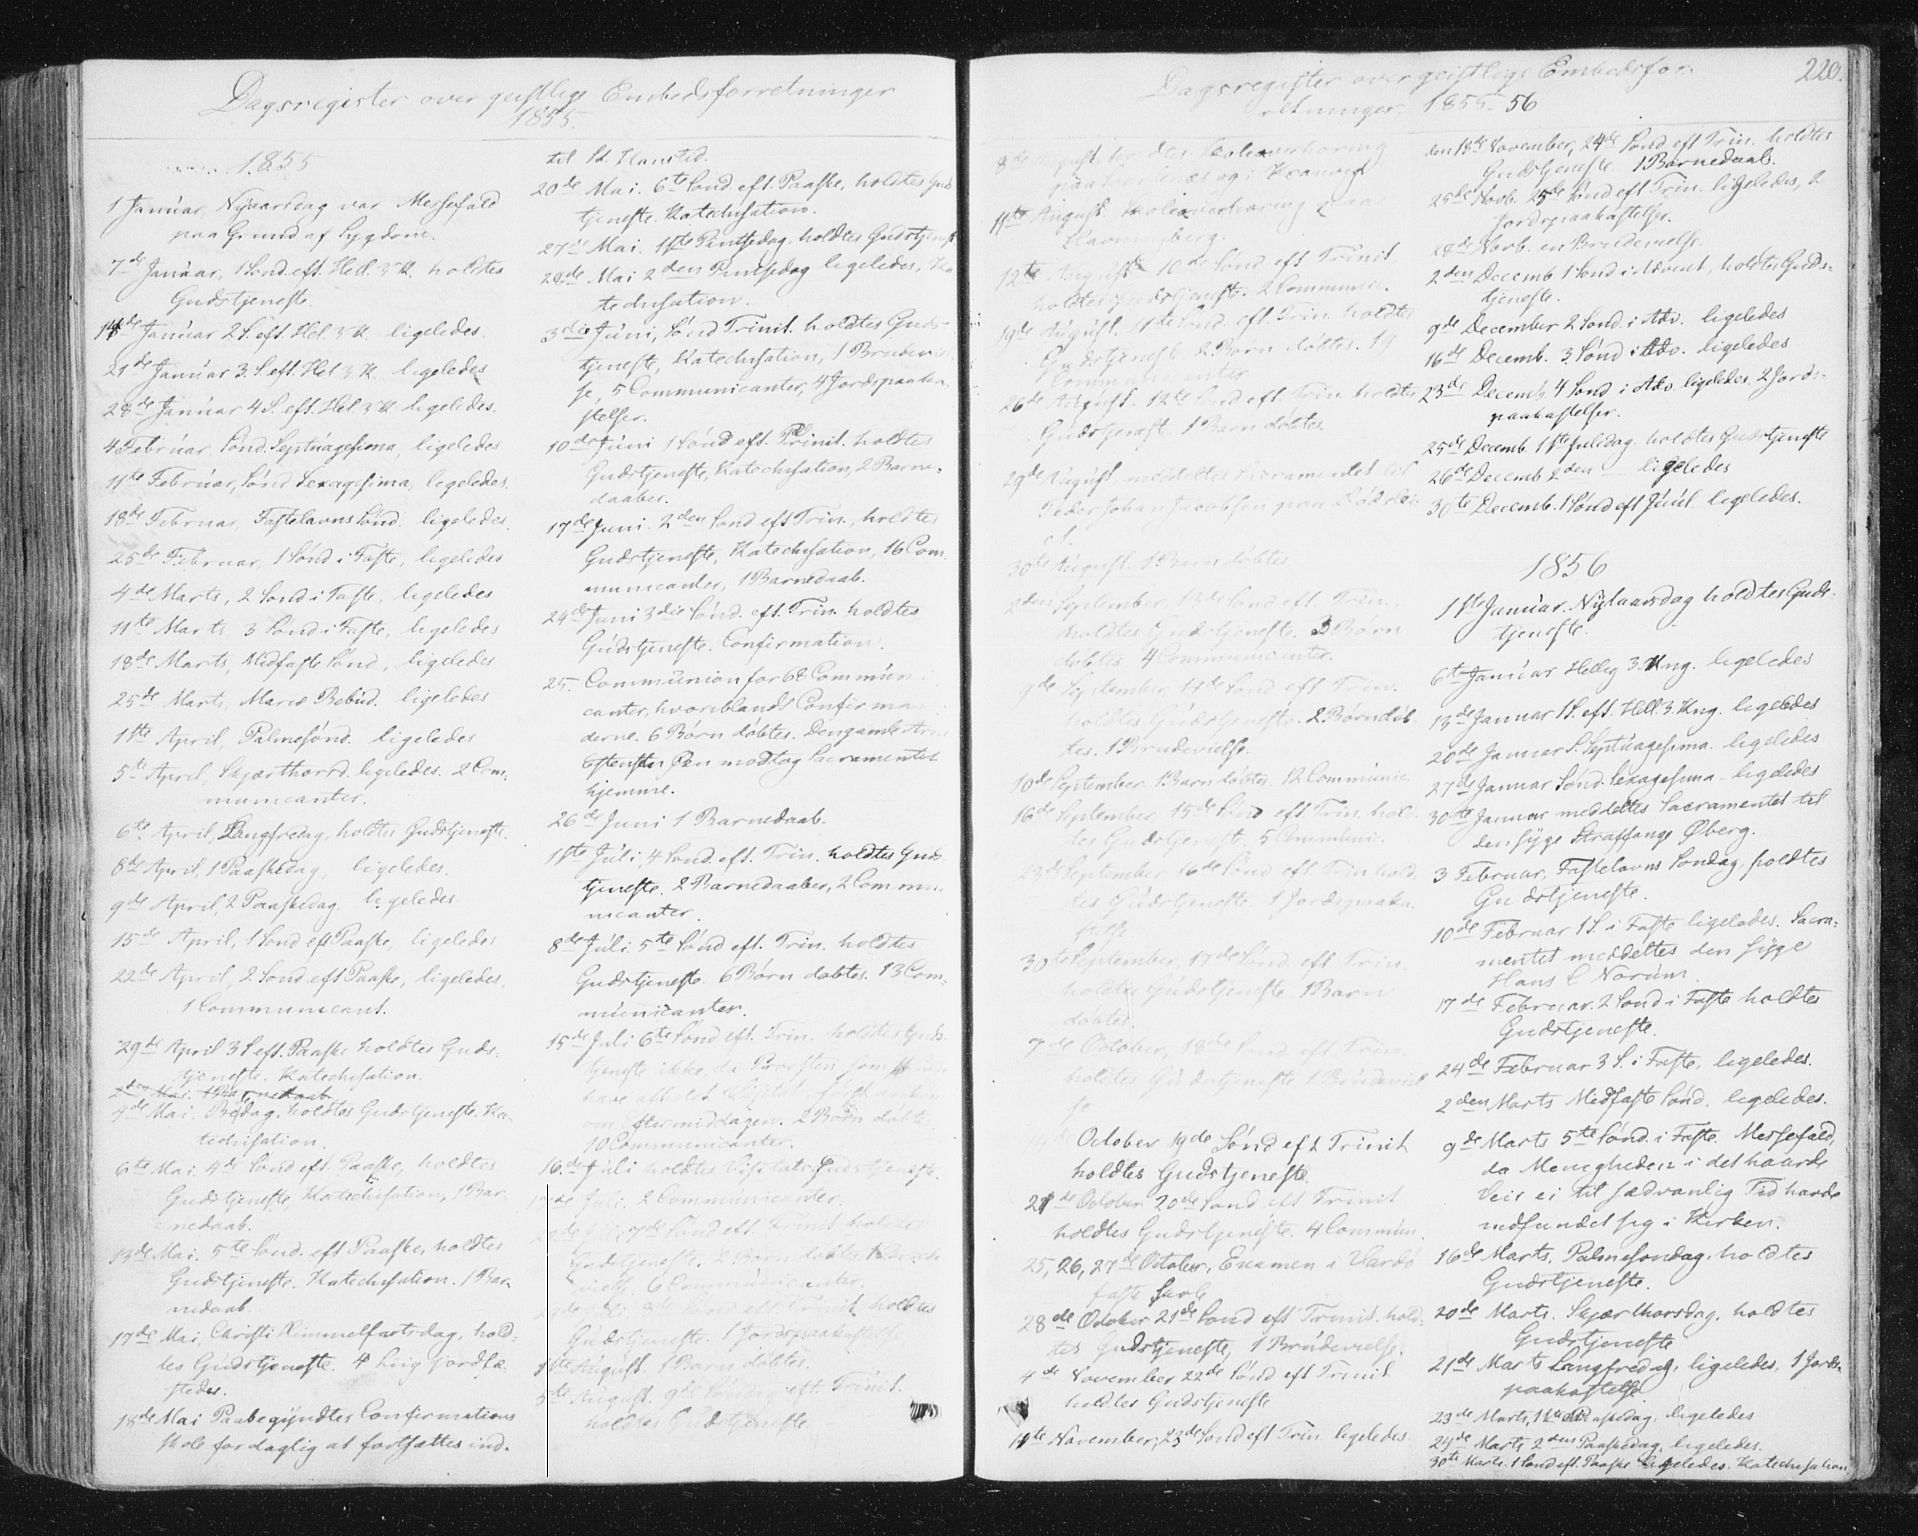 Dagsregister over geistlige Embedsforretninger
1855.
1855
1 Januar, Nyaarsdag var Messefald
paa Grund af Sygdom.
7de Januar, 1 Sönd. eft. Hell. 3 K. holdtes
Gudstjeneste.
14de Januar 2 S. eft. Hel. 3 K. ligeledes.
21de Januar 3. S. eft. Hel 3 K. ligeledes
28de Januar 4 S. eft. Hel 3 K ligeledes.
4 Februar, Sönd. Septuagesima, ligeledes
11te Februar, Sönd Sexagesima, ligeledes.
18de Februar, Fastelavns Sönd. ligeledes.
25de Februar, 1 Sönd i Faste, ligeledes
4de Marts, 2 Sönd i Faste, ligeledes
11te Marts, 3 Sönd i Faste, ligeledes
18de Marts, Midfaste Sönd, ligeledes
25de Marts, Mariæ Bebud. ligeledes
1ste April, Palmesönd. ligeledes
5te April, Skjærthorsd. ligeledes. 2 Com.
municanter.
6te April, Langfredag, holdtes Gudstjeneste.
8de April, 1 Paaskedag, ligeledes.
9de April, 2 Paaskedag. ligeledes.
15de April, 1 Sönd eft Paaske, ligeledes
22de April, 2 Sönd eft Paaske, ligeledes,
1 Communicant.
29de April 3 S eft. Paaske holdtes Guds-
tjeneste. Katechisation.
2den Mai. 1 Barnedaab
4de Mai. Bededag, holdtes Gudstjeneste. Ka-
techisation.
6te Mai. 4de Sönd eft. Paaske, holdtes
Gudstjeneste, Katechisation, 1 Bar-
nedaab.
13de Mai. 5te Sönd. eft Paaske, holdtes
Gudstjeneste. Katechisation. 1 Bar-
nedaab.
17de Mai Christi Himmelfartsdag, hold-
tes Gudstjeneste. 4 Liig jordfæ-
stedes.
18de Mai Paabegyndtes Confirmations
skole for daglig at fortsættes ind-
til St. Hanstid.
20de Mai. 6te Sönd. eft. Paaske, holdtes Guds
tjeneste. Katechisation.
27de Mai. 1ste Pintsedag, holdtes Gudstjenest
28de Mai 2den Pintsedag ligeledes, Ka
techisation.
3die Juni, Sönd Trinit. holdtes Guds-
tjeneste, Katechisation, 1 Brudeviel
se, 5 Communicanter, 4 Jordspaaka-
stelser.
10de Juni 1 Sönd eft. Trinit. holdtes
Gudstjeneste, Katechisation, 2 Barne-
daaber.
17de Juni. 2den Sönd eft Trin., holdtes
Gudstjeneste, Katechisation, 16 Com.
municanter, 1 Barnedaab.
24de Juni 3die Sönd. eft. Trin. holdtes
Gudstjeneste. Confirmation.
25. Communion for 68 Commun
canter, hvoriblandt Confirman
derne. 6 Börn döbtes. Den gamle
modtog Sacramentet
hjemme.
26de Juni 1 Barnedaab.
1ste Juli, 4 Sönd. eft. Trin. holdtes Guds
tjeneste. 2 Barnedaaber, 2 Commu-
nicanter.
8de Juli 5te Sönd eft. Trin. holdtes
Gudstjeneste. 6 Börn döbtes. 13 Com-
municanter.
15de Juli 6te Sönd eft. Trin. holdtes Guds
tjeneste ikke, da Provsten som skulde
have afholdt Visitats först ankom
om Eftermiddagen. 2 Börn döbtes
10 Communicanter.
16de Juli holdtes Visitats Gudstjeneste.
17de Juli. 2 Communicanter.
22de Juli 7de Sönd eft. Trinit holdtes
Gudstjeneste. 2 Börn döbtes
6 Communicanter.
29de Juli. 8de Sönd eft. Trinit holdtes
Gudstjeneste. 1 Jordspaakastelse
1ste August. 1 Barn döbtes.
5te August. 9de Söndag eft. Trinit.
holdtes Gudstjeneste.
Dagsregister over geistlige Embedsfor-
retninger. 1855-56
220.
8de August, holdtes Skoleoverhöring
paa og i Kramvig
11te August. Skoleoverhöring paa
Havningberg.
12te August 10de Sönd eft Trinit
holdtes Gudstjeneste. 2 Communic.
19de August. 11te Sönd. eft. Trin. holdtes
Gudstjeneste. 2 Börn döbtes. 19
Communicanter
26de August. 12te Sönd eft Trin. holdtes
Gudstjenest. 1 Barn döbtes.
29de August, meddeltes Sacramentet til
Peder Johan Jacobsen paa
30te August. 1 Barn döbtes
2den September, 13de Sönd eft. Trin.,
holdtes Gudstjeneste. 3 Börn
döbtes 4 Communicanter.
9de September, 14de Sönd eft Trin.
holdtes Gudstjeneste. 2 Börn döb-
tes. 1 Brudevielse.
10de September. 1 Barn döbtes. 12 Communic.
16de September, 15de Sönd eft Trin. hold-
tes Gudstjeneste 5 Communic.
23de September, 16de Sönd eft Trin hold.
tes Gudstjeneste. 1 Jordspaaka-
stelse
30te September, 17de Sönd. eft Trin.
holdtes Gudstjeneste 1 Barn
döbtes.
7de October, 18de Sönd eft Trin.
holdtes Gudstjeneste 1 Brudeviel
se
October 19de Sönd eft Trinit
holdtes Gudstjeneste.
21de October 20de Sönd eft Trinit
holdtes Gudstjeneste. 4 Commun.
25, 26, 27de October, Examen i Vardö
faste Skole
28de October 21de Sönd eft Trinit. hold-
tes Gudstjeneste, 1 Brudevielse.
4de November 22de Sönd eft Trinit
holdtes Gudstjeneste
11te November, 23de Sönd eft Trin ligeledes.
den 18de November, 24de Sönd eft Trin. holdtes
Gudstjeneste. 1 Barnedaab.
25de Novb. 25de Sönd eft Trin. ligeledes, 2
Jordspaakastelser.
28de Novb. en Brudevielse.
2den Decemb 1 Sönd i Advent, holdtes Guds-
tjeneste.
9de December 2 Sönd. i Adv. ligeledes
16de Decemb. 3 Sönd i Adv. ligeledes
23de Decemb. 4 Sönd i Adv. ligeledes. 2 Jords-
paakastelser.
25de Decemb. 1ste Juledag. holdtes Gudstjeneste
26de Decemb 2den — ligeledes
30te Decemb. 1 Sönd eft Juul. ligeledes.
1856
1ste Januar. Nytaarsdag holdtes Guds-
tjeneste.
6te Januar Hellig 3. Kng. ligeledes
13de Januar 1 S. eft. Hell. 3. Kng. ligeledes
20de Januar S. Septuagesima. ligeledes
27de Januar Sönd. Sexagesima - ligeledes
30te Januar meddeltes Sacramentet til
den syge Straffange Øberg.
3 Februar, Fastelavns Söndag, holdtes
Gudstjeneste.
10de Februar 1 S. i Faste ligeledes. Sacra-
mentet meddeltes den syge
Hans L Norum.
17de Februar. 2 Sönd i Faste holdtes
Gudstjeneste.
24de Februar 3 S. i Faste, ligeledes.
2den Marts Midfaste Sönd. ligeledes.
9de Marts 5te Sönd. i Faste. Messefald,
da Menigheden i det haarde
Veir ei til sædvanlig Tid havde
indfundet sig i Kirken.
16de Marts. Palmesöndag, holdtes
Gudstjeneste.
20de Marts. Skjærthorsdag, holdtes
Gudstjeneste
21de Marts Langfredag, ligeledes, 1 Jords-
paakastelse
23de Marts, 1ste Paaskedag, ligeledes
24de Marts 2den Paaskedag, ligeledes.
30te Marts. 1 Sönd eft. Paaske ligeledes. Katechisation